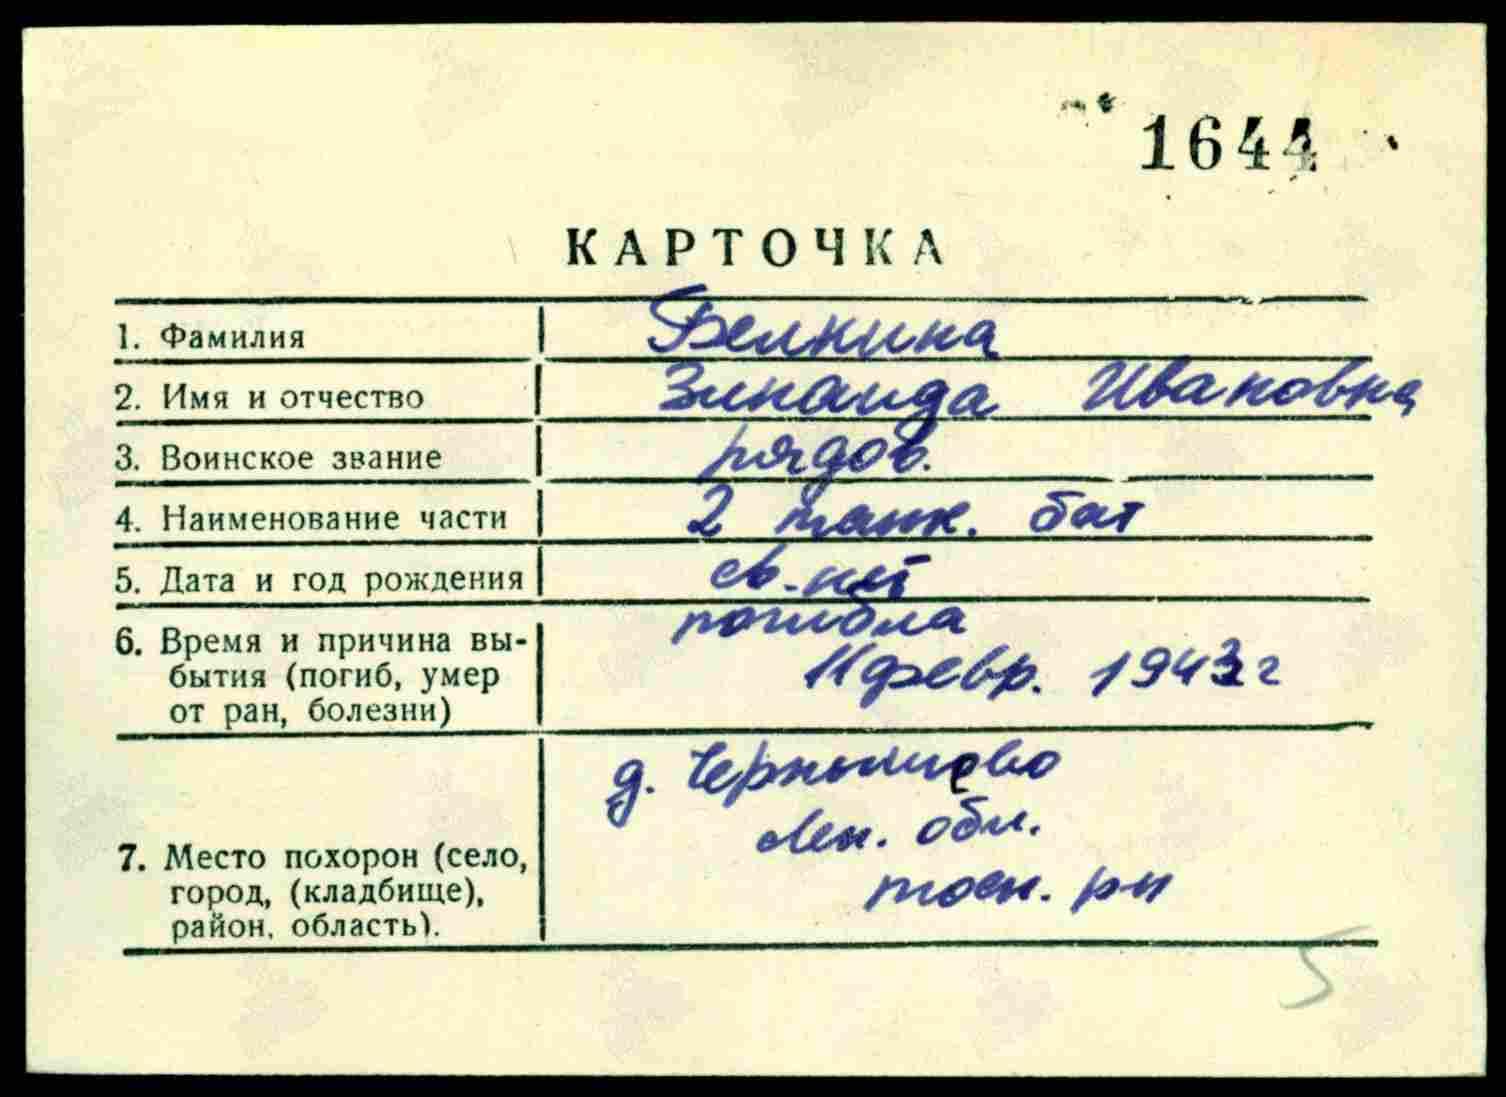 1644
КАРТОЧКА
1. Фамилия Белкина
2. Имя и отчество Зинаида Ивановна
3. Воинское звание рядов.
4. Наименование части 2 танк. бат
5. Дата и год рождения св. нет
6. Время и причина вы- погибла
бытия (погиб, умер 11 февр. 1943 г
от ран, болезни)
д. Чернышево
Лен. обл.
7. Место похорон (село,
город, (кладбище), тосн. рн
район, область).
5